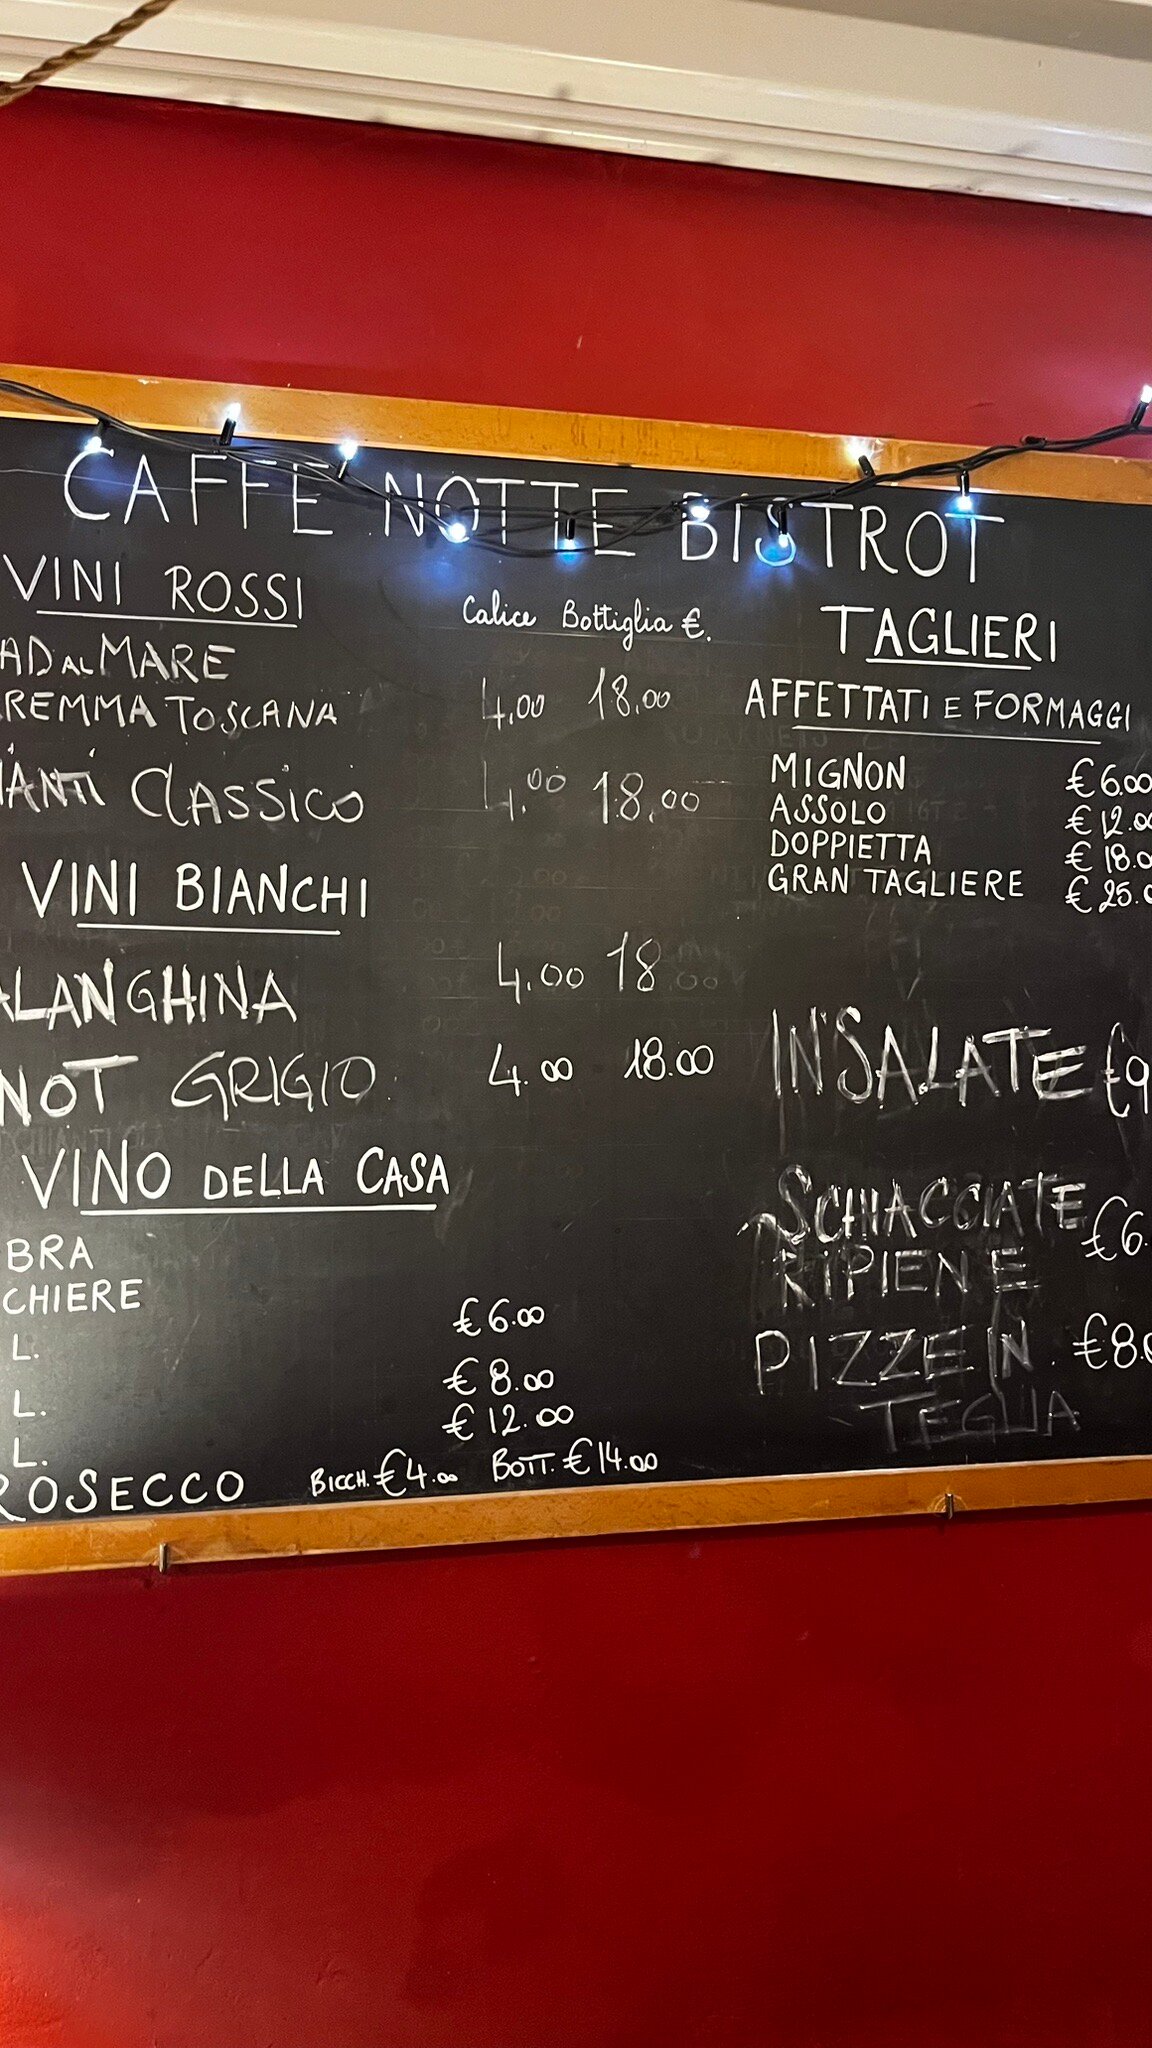 CAFFE NOTTE BISTROT
VINI ROSSI
Calice Bottiglia €.
AD AL MARE
REMMA TOSCANA 4,00 18,00
IANTI CLASSICO 4,00 18,00
VINI BIANCHI
ALANGHINA 4.00 18.00
NOT GRIGIO 4.00 18.00
VINO DELLA CASA
BRA
CHIERE
L. €6.00
L. €8.00
L. €12.00
ROSECCO BICCH. €4.00 BOTT. €14.00
TAGLIERI
AFFETTATI E FORMAGGI
MIGNON €6.00
ASSOLO €12.00
DOPPIETTA €18.0
GRAN TAGLIERE €25.0
INSALATE €9
SCHIACCIATE €6.
RIPIENE
PIZZE IN €8.0
TEGLIA